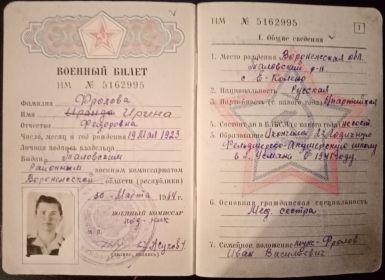 ВОЕННЫЙ БИЛЕТ
НМ № 5162995
Фамилия Фролова
Имя Ирина
Отчество Федоровна
Число, месяц и год рождения 19 мая 1923
Личная подпись владельца
Выдан Таловским
Районным военным комиссариатом
Воронежской области (республики)
30 марта
ВОЕННЫЙ КОМИССАР
НМ № 5162995
1
I. Общие сведения
1. Место рождения Воронежская обл.
Таловский р-н
с В-Колено
2. Национальность Русская
3. Партийность (с какого года)
4. Состоял в ВЛКСМ с какого
5. Образование Окончила 2х годичную
Фельдшерско-Акушерскую школу
в г. Усмань в 1941 году.
6. Основная гражданская специальность
Мед. сестра
7. Семейное положение муж-Фролов
Иван Васильевич